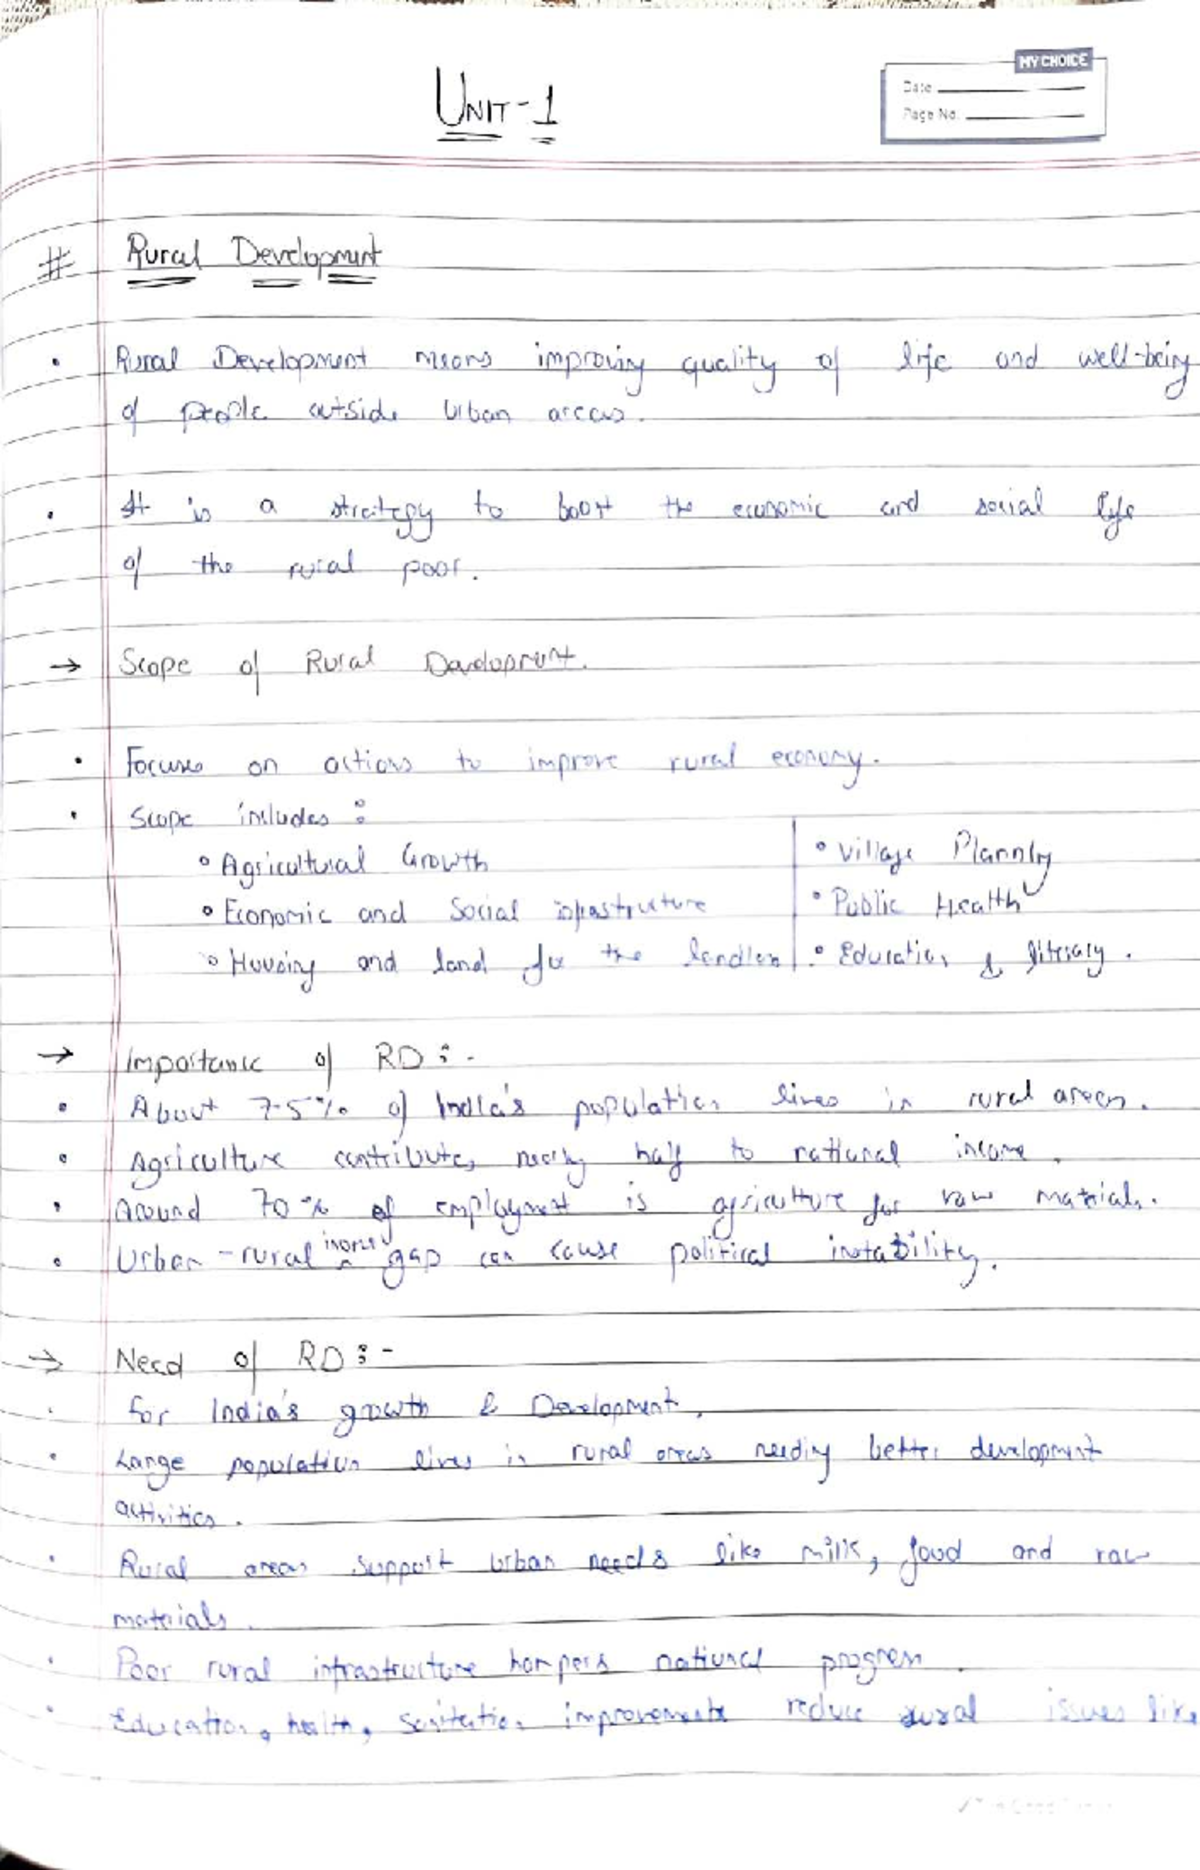 UNIT-1
MY CHOICE
Date
Page No.
# Rural Development
• Rural Development means improving quality of life and well-being
of people outside Urban areas.
• It is a strategy to boost the economic and social life
of the rural poor.
→ Scope of Rural Development.
• Focuses on actions to improve rural economy.
• Scope includes :
• Agricultural Growth
• Economic and Social infrastructure
• Housing and land for the landless
• Village Planning
• Public Health
• Education & literacy.
→ Importance of RD :-
• About 75% of India's population lives in rural areas.
• Agriculture contributes nearly half to national income.
• Around 70% of employment is agriculture for raw materials.
• Urban-rural income gap can cause political instability.
→ Need of RD :-
• for India's growth & Development.
• Large population lives in rural areas needing better development
activities.
• Rural areas support urban needs like milk, food and raw
materials.
• Poor rural infrastructure hampers national progress.
• Education, health, sanitation improvements reduce rural issues like